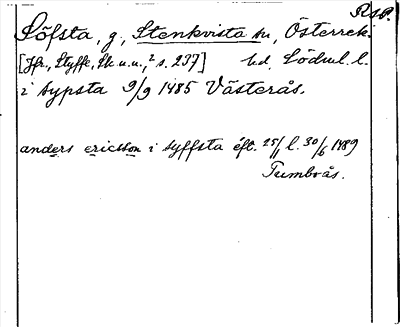 Rsp.
Söfsta, g., Stenkvista sn, Österrek.
[Jfr. Styffe, Sk u.u.,² s. 237] hd. Södml. l.
i sypsta 9/9 1485 Västerås.
anders ericsson i syffsta éft. 25/11 l. 30/6 1489
Tumboås.